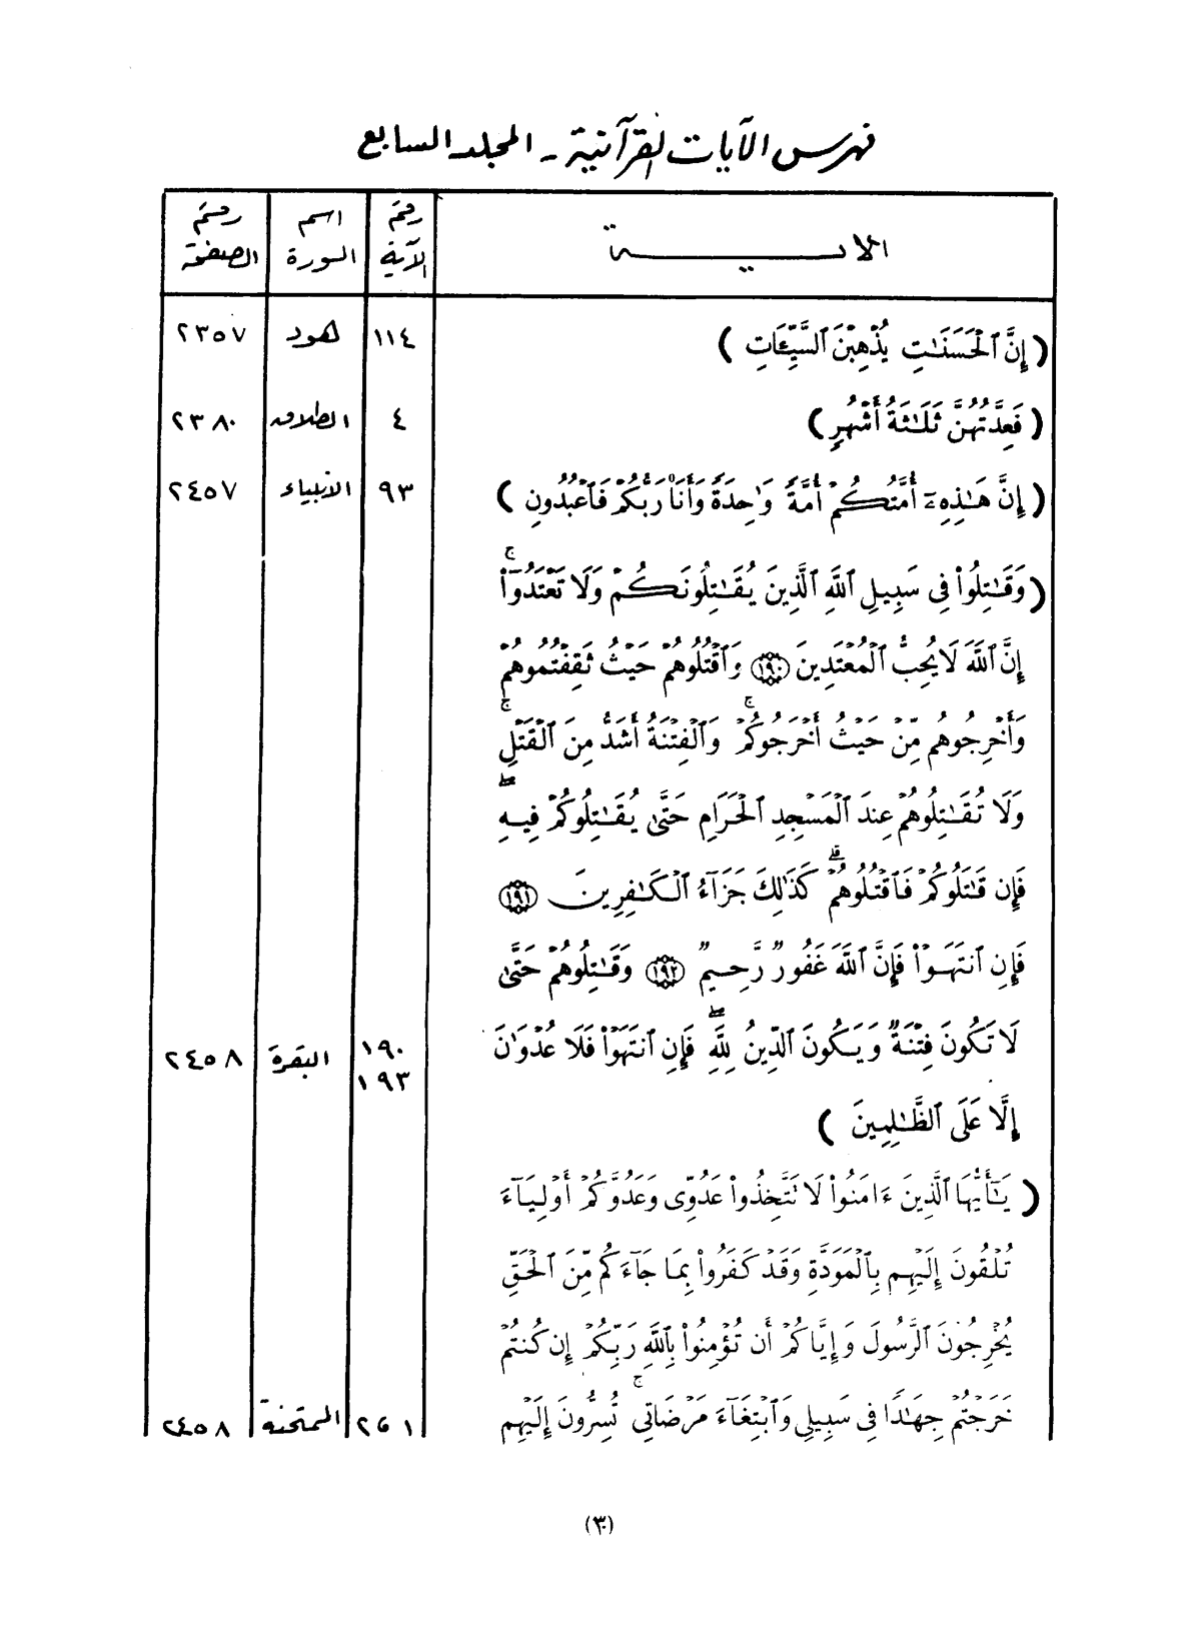 فهرس الآيات القرآنية - المجلد السابع
الآيــــــــة | رقم الآية | اسم السورة | رقم الصفحة
( إِنَّ ٱلْحَسَنَٰتِ يُذْهِبْنَ ٱلسَّيِّـَٔاتِ ) | ١١٤ | هود | ٢٣٥٧
( فَعِدَّتُهُنَّ ثَلَٰثَةُ أَشْهُرٍ ) | ٤ | الطلاق | ٢٣٨٠
( إِنَّ هَٰذِهِۦٓ أُمَّتُكُمْ أُمَّةً وَٰحِدَةً وَأَنَا۠ رَبُّكُمْ فَٱعْبُدُونِ ) | ٩٣ | الأنبياء | ٢٤٥٧
( وَقَٰتِلُوا۟ فِى سَبِيلِ ٱللَّهِ ٱلَّذِينَ يُقَٰتِلُونَكُمْ وَلَا تَعْتَدُوٓا۟ ۚ
إِنَّ ٱللَّهَ لَا يُحِبُّ ٱلْمُعْتَدِينَ ١٩٠ وَٱقْتُلُوهُمْ حَيْثُ ثَقِفْتُمُوهُمْ
وَأَخْرِجُوهُم مِّنْ حَيْثُ أَخْرَجُوكُمْ ۚ وَٱلْفِتْنَةُ أَشَدُّ مِنَ ٱلْقَتْلِ ۚ
وَلَا تُقَٰتِلُوهُمْ عِندَ ٱلْمَسْجِدِ ٱلْحَرَامِ حَتَّىٰ يُقَٰتِلُوكُمْ فِيهِ ۖ
فَإِن قَٰتَلُوكُمْ فَٱقْتُلُوهُمْ ۗ كَذَٰلِكَ جَزَآءُ ٱلْكَٰفِرِينَ ١٩١
فَإِنِ ٱنتَهَوْا۟ فَإِنَّ ٱللَّهَ غَفُورٌ رَّحِيمٌ ١٩٢ وَقَٰتِلُوهُمْ حَتَّىٰ
لَا تَكُونَ فِتْنَةٌ وَيَكُونَ ٱلدِّينُ لِلَّهِ ۖ فَإِنِ ٱنتَهَوْا۟ فَلَا عُدْوَٰنَ | ١٩٠ ١٩٣ | البقرة | ٢٤٥٨
إِلَّا عَلَى ٱلظَّٰلِمِينَ )
( يَٰٓأَيُّهَا ٱلَّذِينَ ءَامَنُوا۟ لَا تَتَّخِذُوا۟ عَدُوِّى وَعَدُوَّكُمْ أَوْلِيَآءَ
تُلْقُونَ إِلَيْهِم بِٱلْمَوَدَّةِ وَقَدْ كَفَرُوا۟ بِمَا جَآءَكُم مِّنَ ٱلْحَقِّ
يُخْرِجُونَ ٱلرَّسُولَ وَإِيَّاكُمْ أَن تُؤْمِنُوا۟ بِٱللَّهِ رَبِّكُمْ إِن كُنتُمْ
خَرَجْتُمْ جِهَٰدًا فِى سَبِيلِى وَٱبْتِغَآءَ مَرْضَاتِى ۚ تُسِرُّونَ إِلَيْهِم | ٢،١ | الممتحنة | ٢٤٥٨
(٣)